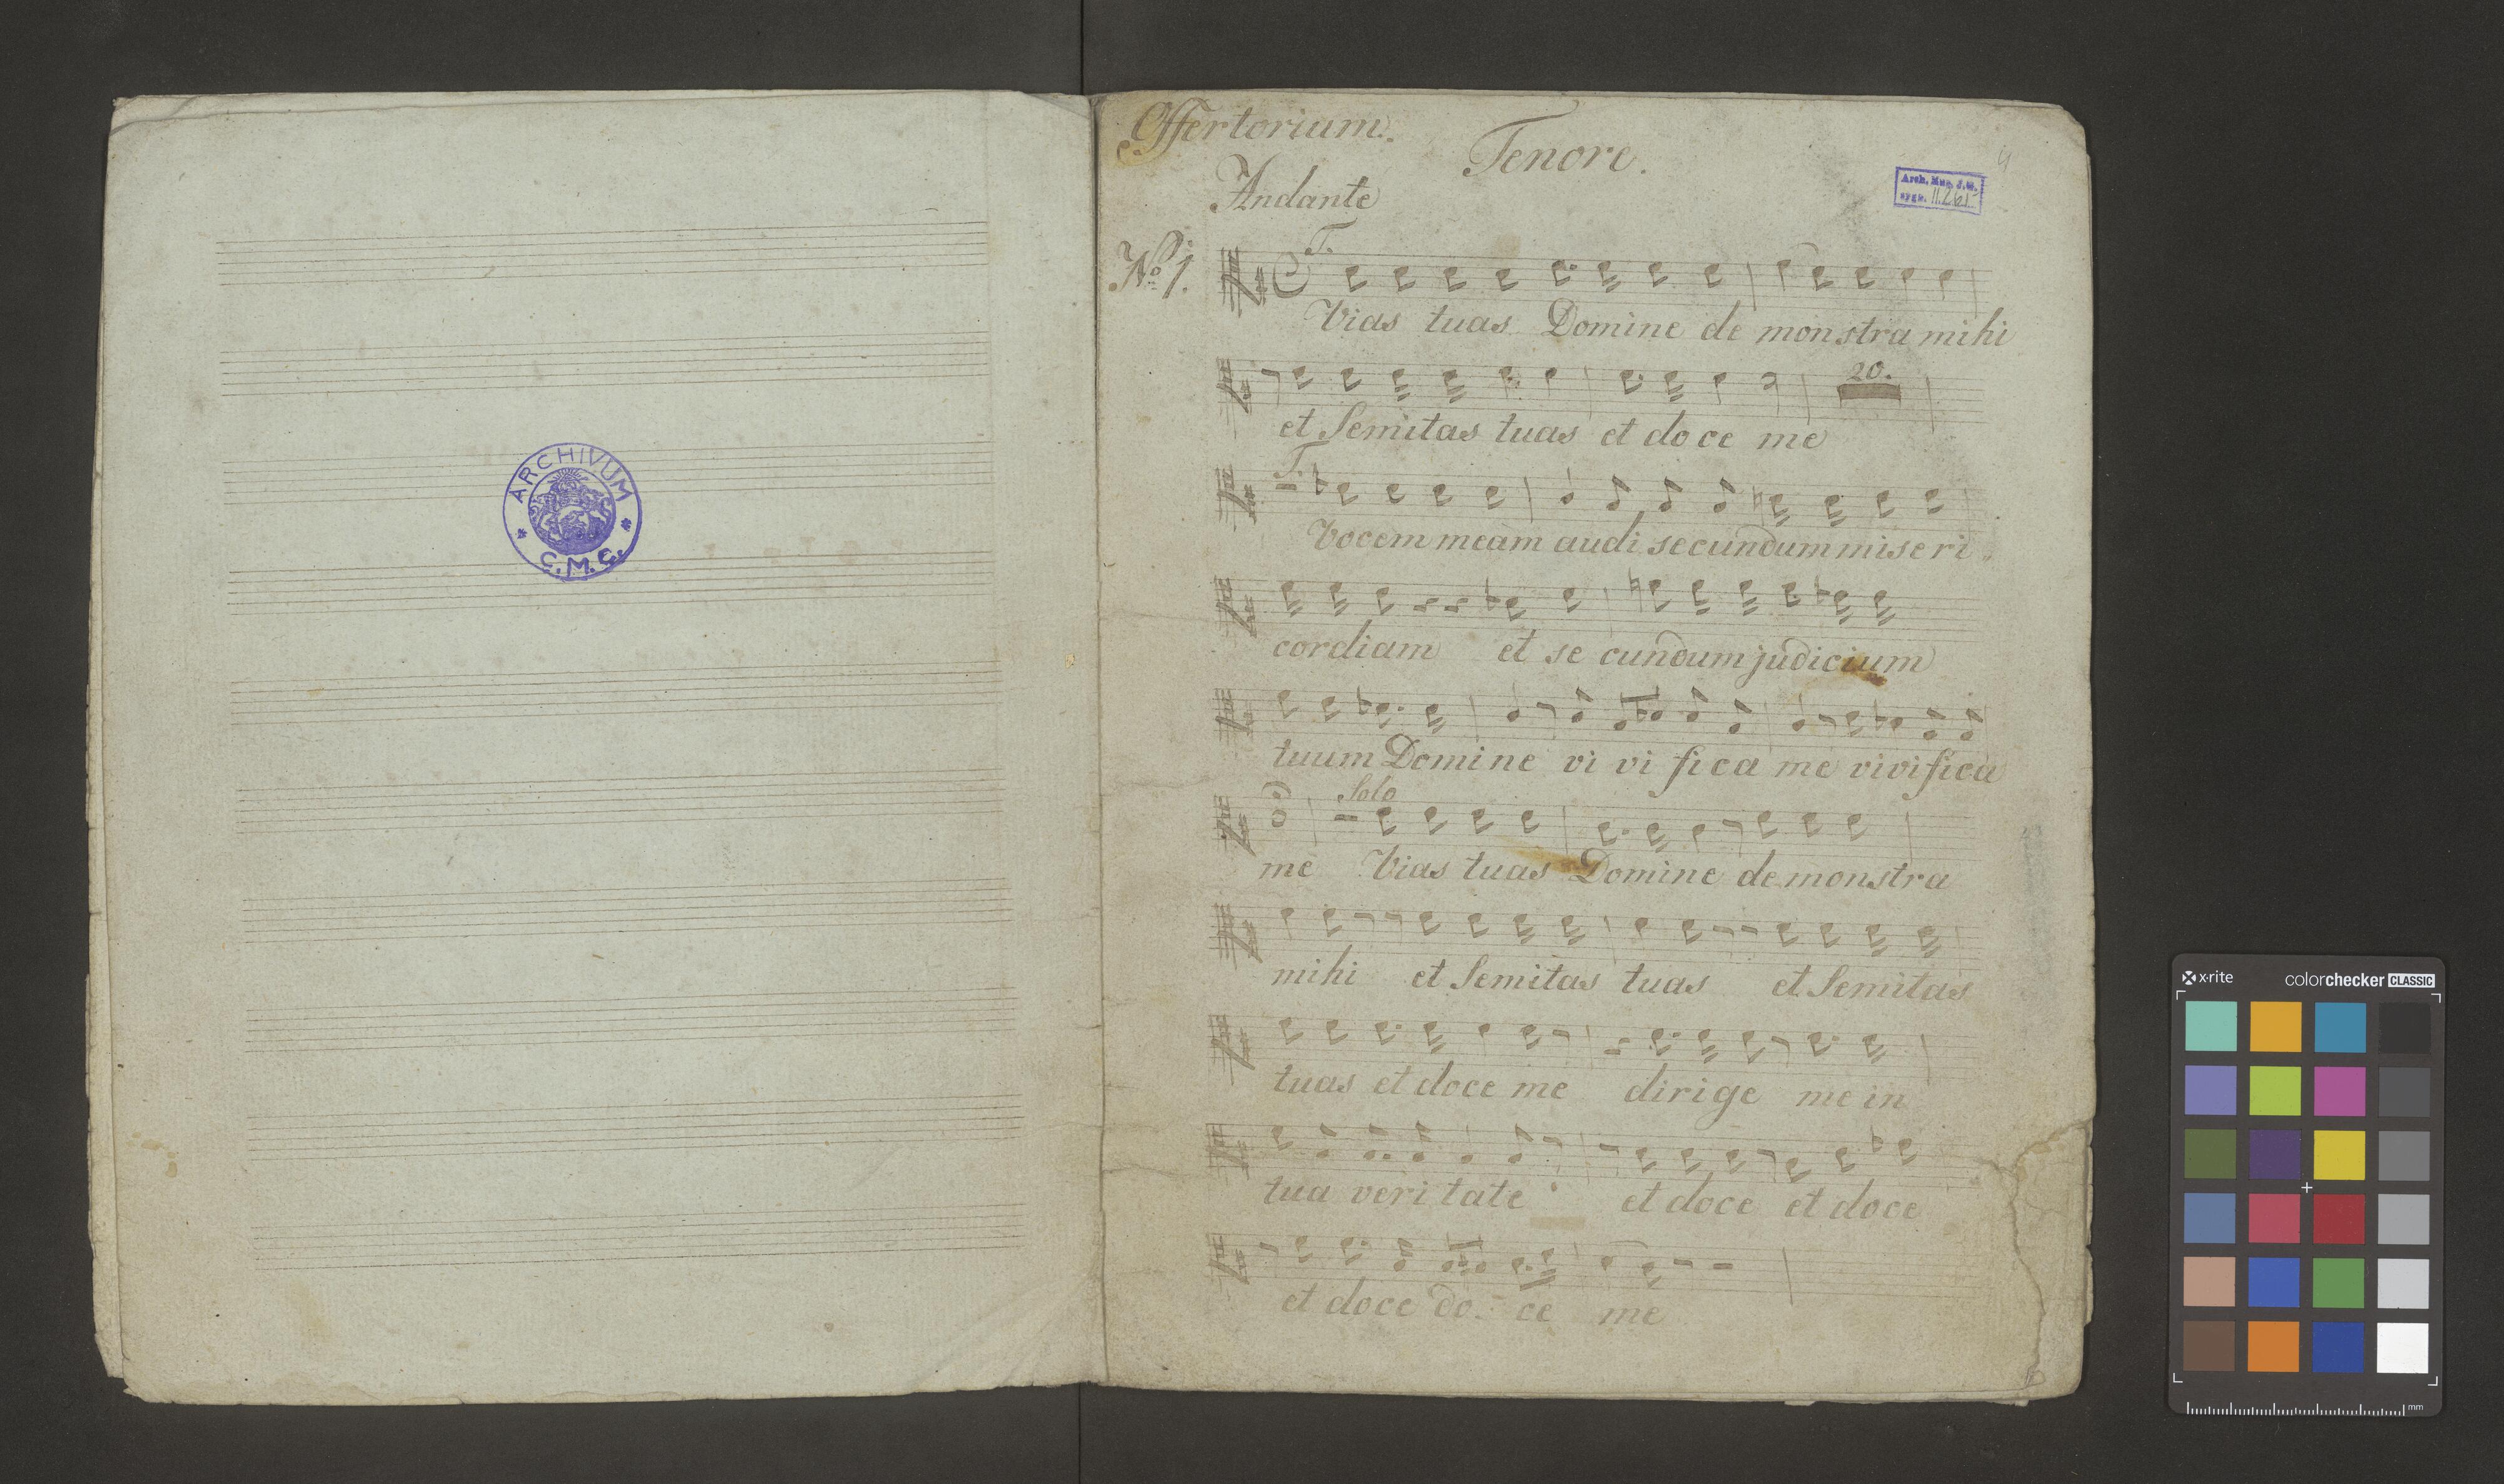 ARCHIVUM
C.M.C.
Offertorium.
Tenore.
4
Andante
Arch. Muz. J.G.
sygn. II.261
No 1.
T.
Vias tuas Domine de monstra mihi
20.
et Semitas tuas et do ce me
T.
Vocem meam audi secundum miseri
cordiam et se cundum judicium
tuum Domine vi vi fica me vivifica
Solo
me Vias tuas Domine demonstra
mihi et Semitas tuas et Semitas
tuas et doce me dirige me in
tua veri tate et doce et doce
et doce do. ce me
x-rite colorchecker CLASSIC
mm